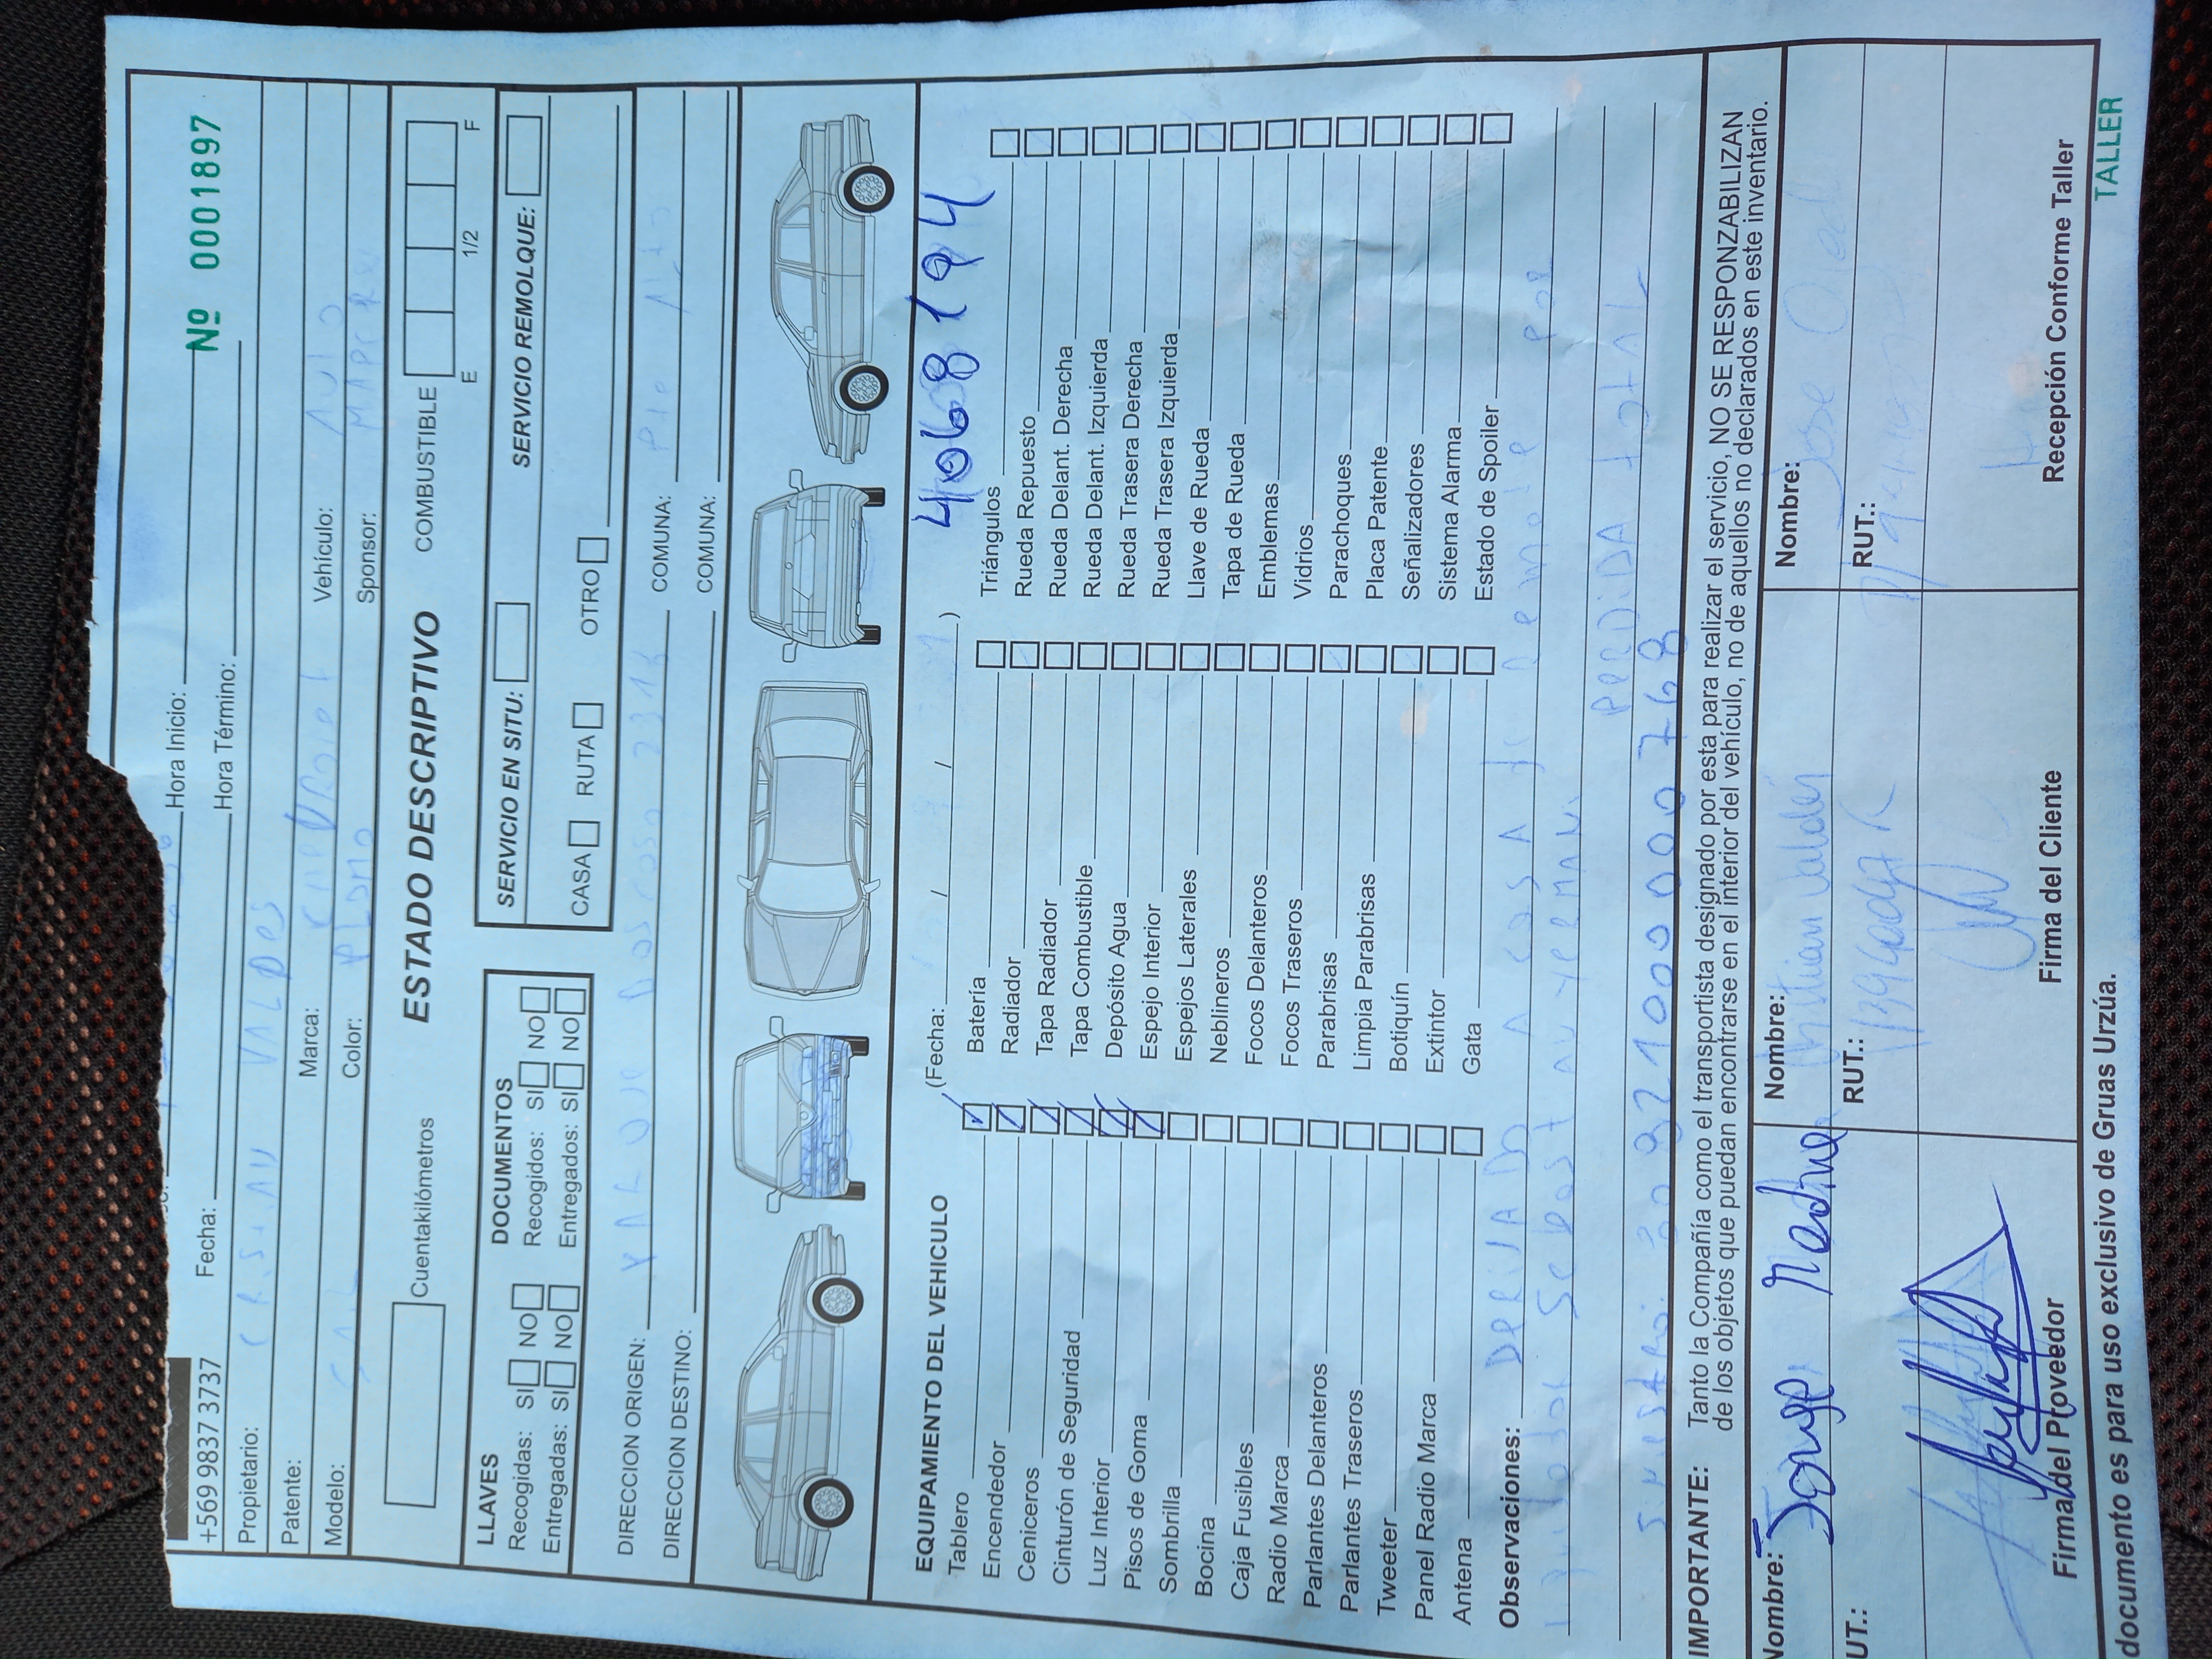 Nº 0001897
Hora Inicio:
+569 9837 3737 Fecha: Hora Término:
Propietario: VALDES
Patente: Marca: Vehículo: AUTO
Modelo: Color: PLOMO Sponsor: MAPFRE
ESTADO DESCRIPTIVO
Cuentakilómetros
COMBUSTIBLE
E 1/2 F
LLAVES
Recogidas: SI NO
Entregadas: SI NO
DOCUMENTOS
Recogidos: SI NO
Entregados: SI NO
SERVICIO EN SITU: SERVICIO REMOLQUE:
CASA RUTA OTRO
DIRECCION ORIGEN: COMUNA: Pte Alto
DIRECCION DESTINO: COMUNA:
EQUIPAMIENTO DEL VEHICULO (Fecha: / / )
4068194
Tablero Batería Triángulos
Encendedor Radiador Rueda Repuesto
Ceniceros Tapa Radiador Rueda Delant. Derecha
Cinturón de Seguridad Tapa Combustible Rueda Delant. Izquierda
Luz Interior Depósito Agua Rueda Trasera Derecha
Pisos de Goma Espejo Interior Rueda Trasera Izquierda
Sombrilla Espejos Laterales Llave de Rueda
Bocina Neblineros Tapa de Rueda
Caja Fusibles Focos Delanteros Emblemas
Radio Marca Focos Traseros Vidrios
Parlantes Delanteros Parabrisas Parachoques
Parlantes Traseros Limpia Parabrisas Placa Patente
Tweeter Botiquín Señalizadores
Panel Radio Marca Extintor Sistema Alarma
Antena Gata Estado de Spoiler
Observaciones: DERIVADO A CASA de Remate Por
PERDIDA total
IMPORTANTE: Tanto la Compañía como el transportista designado por esta para realizar el servicio, NO SE RESPONZABILIZAN
de los objetos que puedan encontrarse en el interior del vehículo, no de aquellos no declarados en este inventario.
Nombre: Nombre: Valdés Nombre: Jose
UT.: RUT.: RUT.:
Firma del Proveedor Firma del Cliente Recepción Conforme Taller
documento es para uso exclusivo de Gruas Urzúa. TALLER